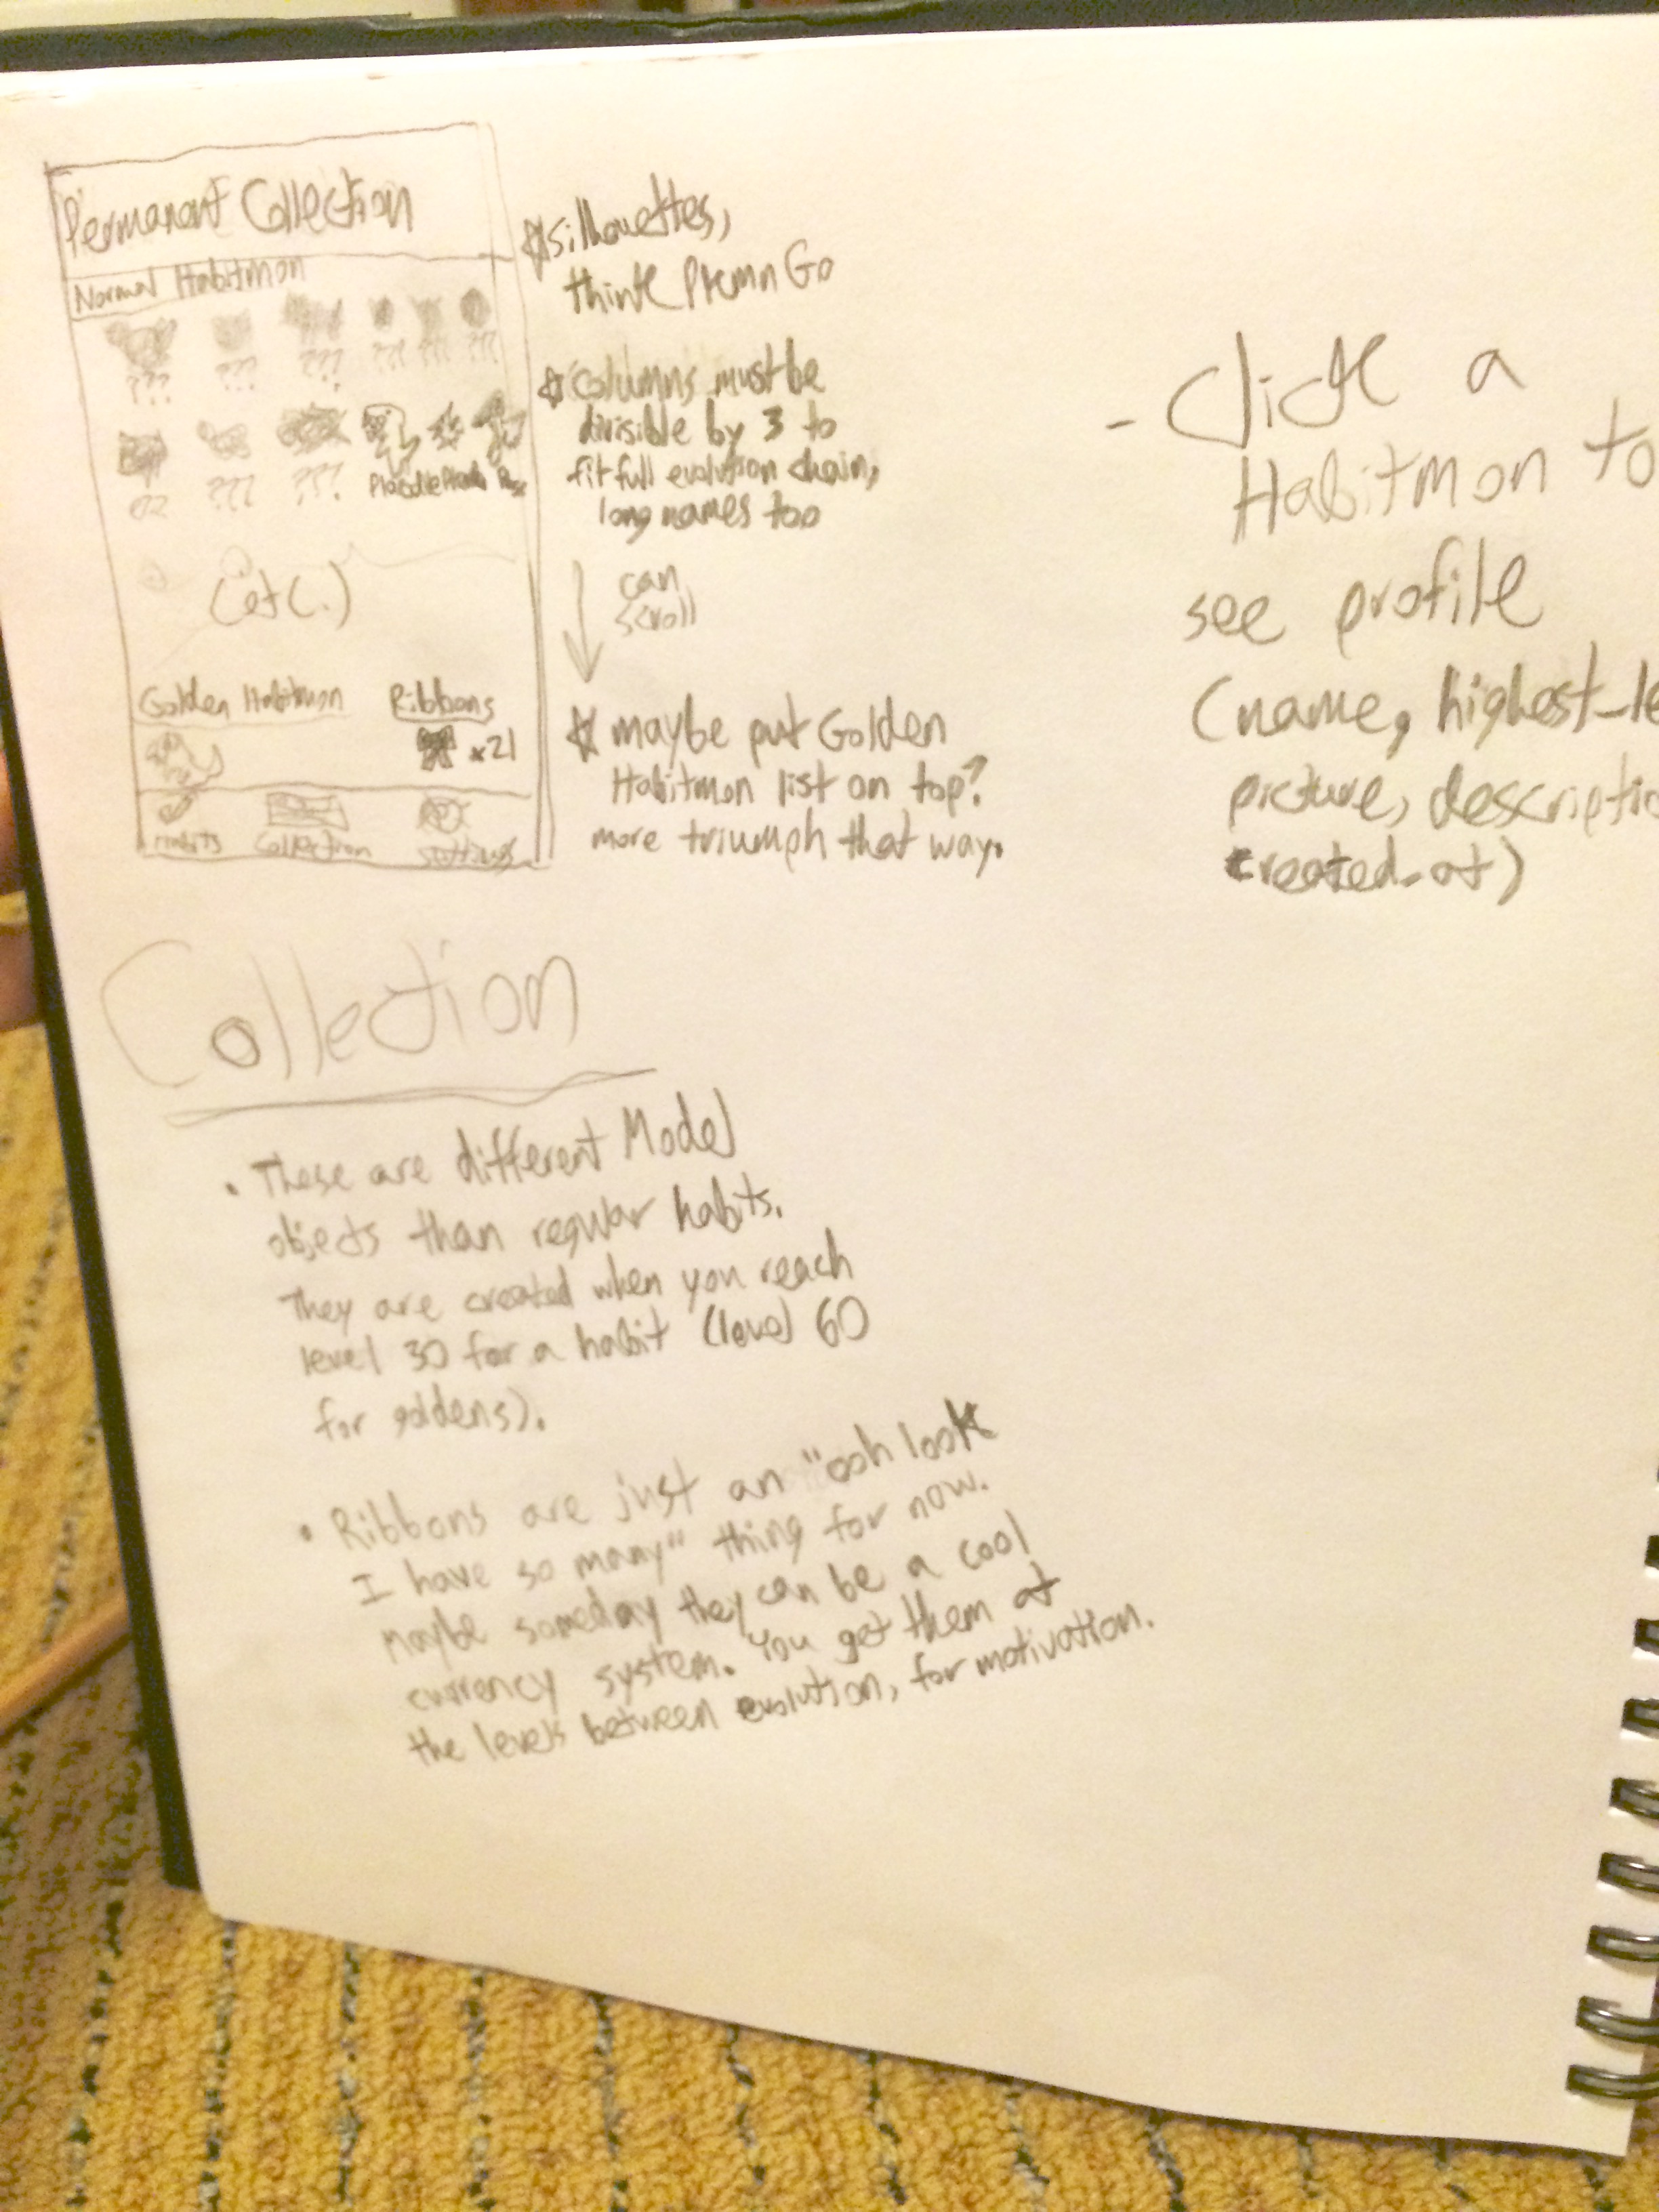 Permanent Collection
Normal Habitmon
??? ??? ??? ??? ??? ???
??? ???
(etc.)
Golden Habitmon Ribbons
x21
Habits Collection Settings
silhouettes,
think Pkmn Go
columns must be
divisible by 3 to
fit full evolution chain,
long names too
can
scroll
maybe put Golden
Habitmon list on top?
more triumph that way.
- Click a
Habitmon to
see profile
(name, highest_le
picture, descriptio
created_at)
Collection
• These are different Model
objects than regular habits.
They are created when you reach
level 30 for a habit (level 60
for goldens).
• Ribbons are just an "ooh look
I have so many" thing for now.
Maybe someday they can be a cool
currency system. You get them at
the levels between evolution, for motivation.